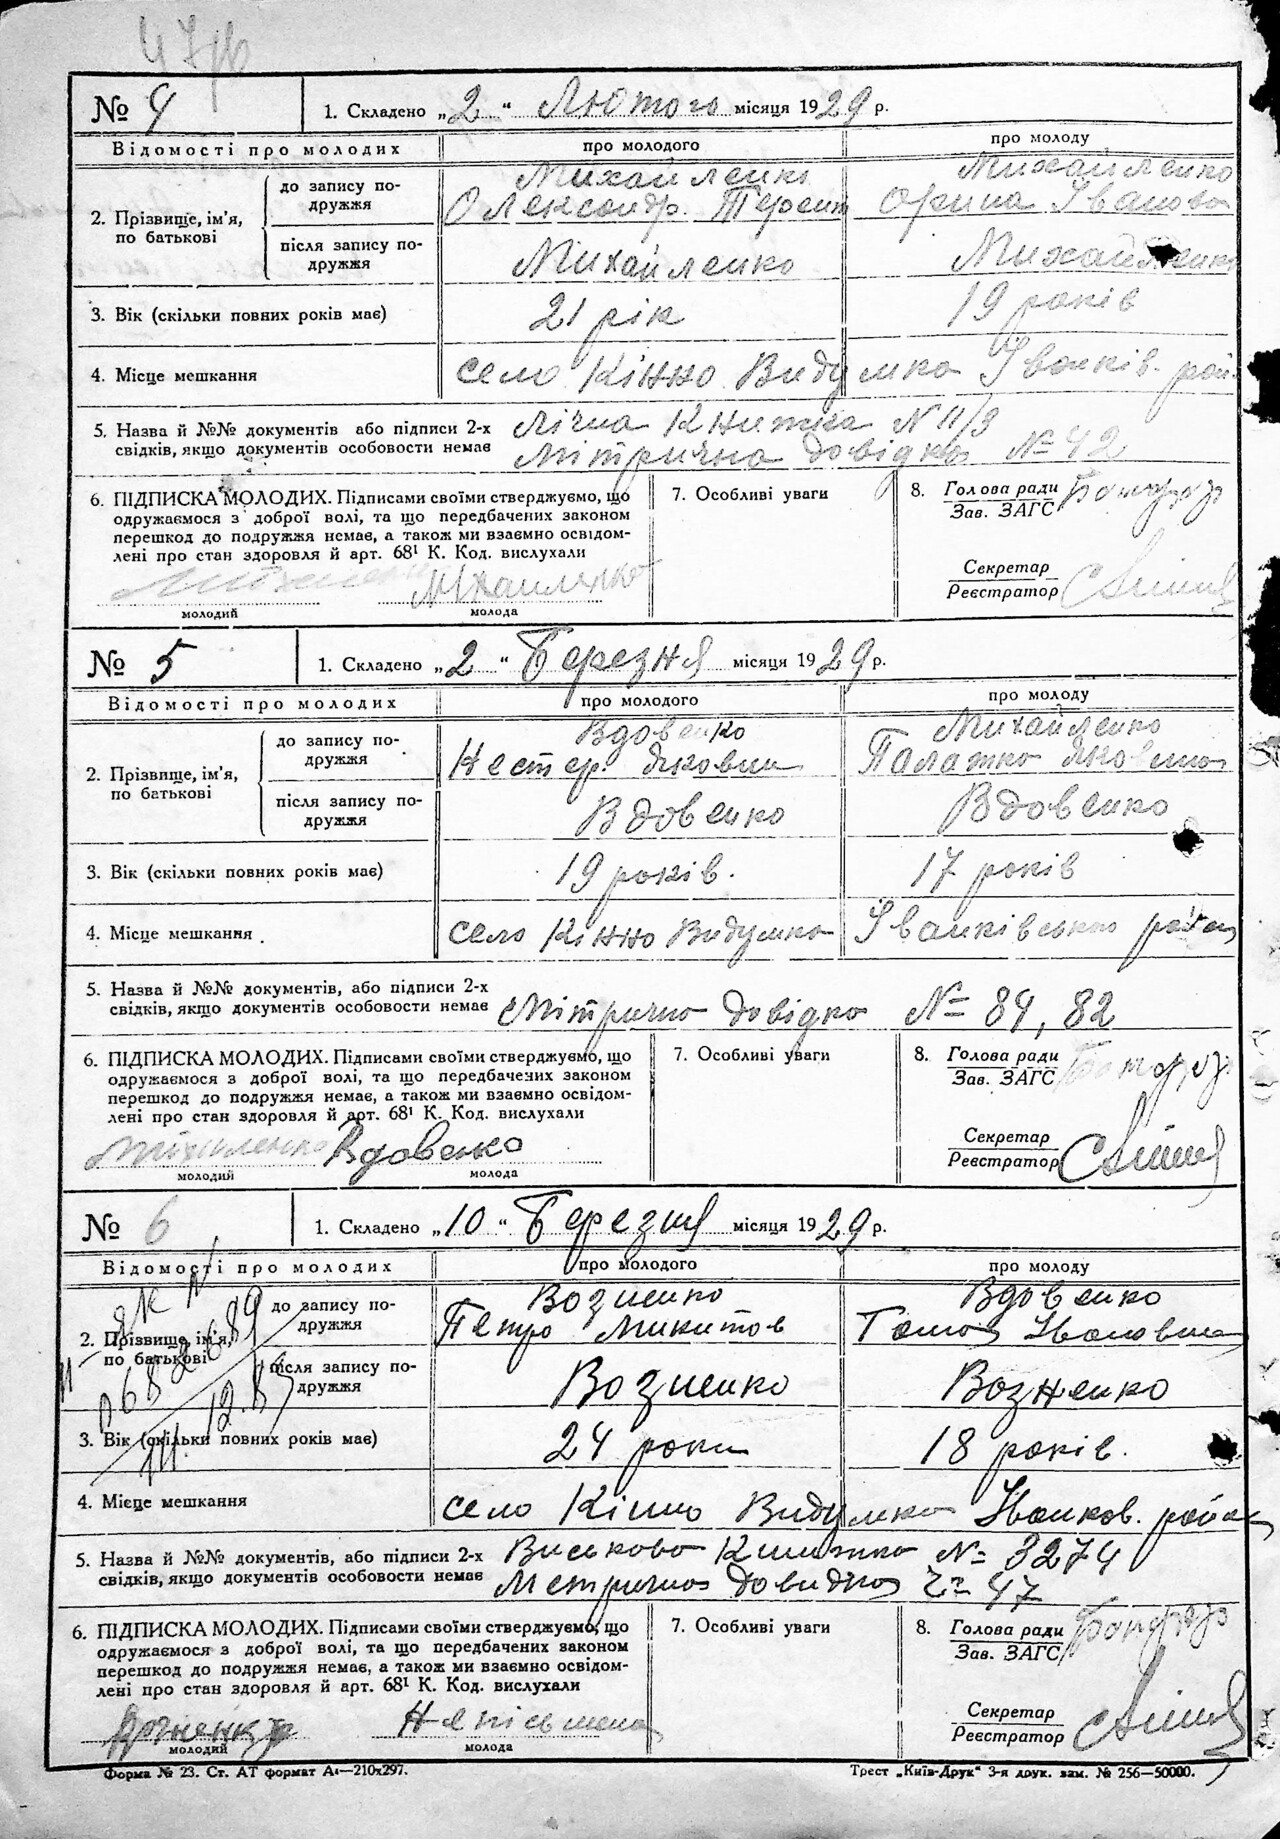 № 4
1. Складено „2“ Лютого місяця 1929 р.
Відомості про молодих
про молодого
про молоду
2. Прізвище, ім'я, по батькові
до запису подружжя
Михайленко
Олександр. Терент
Михайленко
Орина Іванова
після запису подружжя
Михайленко
Михайленко
3. Вік (скільки повних років має)
21 рік
19 років
4. Місце мешкання
село Кінно Видумка Іванків. рай.
5. Назва й №№ документів або підписи 2-х
свідків, якщо документів особовости немає
Лічна Книжка N 11/3
Мітрична довідка № 42
6. ПІДПИСКА МОЛОДИХ. Підписами своїми стверджуємо, що
одружаємося з доброї волі, та що передбачених законом
перешкод до подружжя немає, а також ми взаємно освідом-
лені про стан здоровля й арт. 68¹ К. Код. вислухали
Михайленко
молодий
молода
7. Особливі уваги
8. Голова ради
Зав. ЗАГС
Секретар
Реєстратор
№ 5
1. Складено „2“ Березня місяця 1929 р.
Відомості про молодих
про молодого
про молоду
2. Прізвище, ім'я,
по батькові
до запису по-
дружжя
Вдовенко
Нестер. Якович
Михайленко
Палажка Яковина
після запису по-
дружжя
Вдовенко
Вдовенко
3. Вік (скільки повних років має)
19 років.
17 років
4. Місце мешкання
село Кінно Видумка Іванківського району
5. Назва й №№ документів, або підписи 2-х
свідків, якщо документів особовости немає
Мітрична довідка № 84, 82
6. ПІДПИСКА МОЛОДИХ. Підписами своїми стверджуємо, що
одружаємося з доброї волі, та що передбачених законом
перешкод до подружжя немає, а також ми взаємно освідом-
лені про стан здоровля й арт. 68¹ К. Код. вислухали
Михайленко Вдовенко
молодий
молода
7. Особливі уваги
8. Голова ради
Зав. ЗАГС
Секретар
Реєстратор
№ 6
1. Складено „10“ Березня місяця 1929 р.
Відомості про молодих
про молодого
про молоду
2. Прізвище, ім'я,
по батькові
до запису по-
дружжя
Возненко
Петро Микитов
Вдовенко
Ганна Ивановна
після запису по-
дружжя
Возненко
Возненко
3. Вік (скільки повних років має)
24 роки
18 років.
4. Місце мешкання
село Кінно Видумка Иванков. район
5. Назва й №№ документів, або підписи 2-х
свідків, якщо документів особовости немає
Військова Книжка № 3274
Метрична довидка 47
6. ПІДПИСКА МОЛОДИХ. Підписами своїми стверджуємо, що
одружаємося з доброї волі, та що передбачених законом
перешкод до подружжя немає, а також ми взаємно освідом-
лені про стан здоровля й арт. 68¹ К. Код. вислухали
Возненко Непісьмена
молодий
молода
7. Особливі уваги
8. Голова ради
Зав. ЗАГС
Секретар
Реєстратор
Форма № 23. Ст. АТ формат А₄—210х297.
Трест „Київ-Друк“ 3-я друк. зам. № 256—50000.